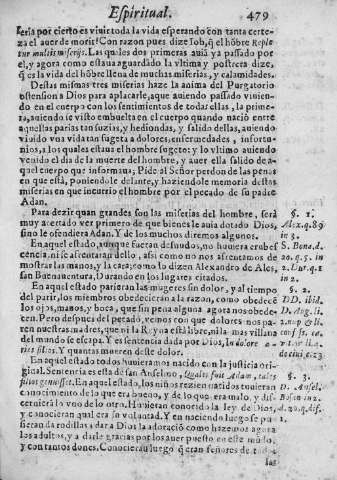 Espiritual. 479
seria por cierto es viuir toda la vida esperando con tanta certe-
za el auer de morir! Con razon pues dize Iob, q̃ el hõbre Reple
tur multis miserijs. Las quales dos primeras auia ya passado por
el, y agora como estaua aguardãdo la vltima y postrera dize,
q̃ es la vida del hõbre llena de muchas miserias, y calamidades.
Destas mismas tres miserias haze la anima del Purgatorio
ostension à Dios para aplacarle, que auiendo passado viuien-
do en el cuerpo con los sentimientos de todas ellas, la prime-
ra, auiendo se visto embuelta en el cuerpo quando naciò entre
aquellas parias tan suzias, y hediondas, y salido dellas, auiendo
viuido vna vida tan sugeta a dolores, enfermedades, infortu-
nios, a los quales estaua el hombre sugeto: y lo vltimo auiendo
venido el dia de la muerte del hombre, y auer ella salido de a-
quel cuerpo que informaua; Pide al Señor perdon de las penas
en que està, poniendole delante, y haziendole memoria destas
miserias en que incurrio el hombre por el pecado de su padre
Adan.
Para dezir quan grandes son las miserias del hombre, serà
muy acertado ver primero de que bienes le auia dotado Dios,
sino le ofendiera Adan. Y de los muchos diremos algunos.
En aquel estado, aunque fueran desnudos, no huuiera crubes
cencia, ni se afrentaran dello, assi como no nos afrentamos de
mostrar las manos, y la cara; como lo dizen Alexandro de Ales,
san Buenauentura, Durando en los lugares citados.
En aquel estado parieran las mugeres sin dolor, y al tiempo
del parir, los miembros obedecieran a la razon, como obedecẽ
los ojos, manos, y boca, que sin pena alguna agora nos obede-
cen. Pero despues de pecado, vemos con que dolores nos pa-
ren nuestras madres, que ni la Reyna està libre, ni la mas villana
del mundo se escapa. Y es sentencia dada por Dios, In dolore a-
ries filios. Y quantas mueren deste dolor.
En aquel estado todos tuuieramos nacido con la justicia ori-
ginal. Sentencia es esta de san Anselmo, Qualis fuit Adam, tales
filios genuisset. En aquel estado, los niños rezien nacidos tuuierã
conocimiento de lo que era bueno, y de lo que era malo, y dis-
cernieran lo vno de lo otro. Huuieran conocido la ley de Dios,
y conocieran qual era su voluntad. Y en naciendo luego se pu-
sieran de rodillas a dara Dios la adoraciò como hazemos agora
los adultos, y a darle gracias por los auer puesto en este mũdo,
y con tantos dones. Conocieran luego q̃ eran señores de todas
las
§. 1.
Alex. q. 89
in 3.
S. Bona. d.
20. q. 5. in
2. Dur. q. 1
in 2.
§. 2.
DD. ibid.
D. Aug. li.
§. 3.
D. Ansel.